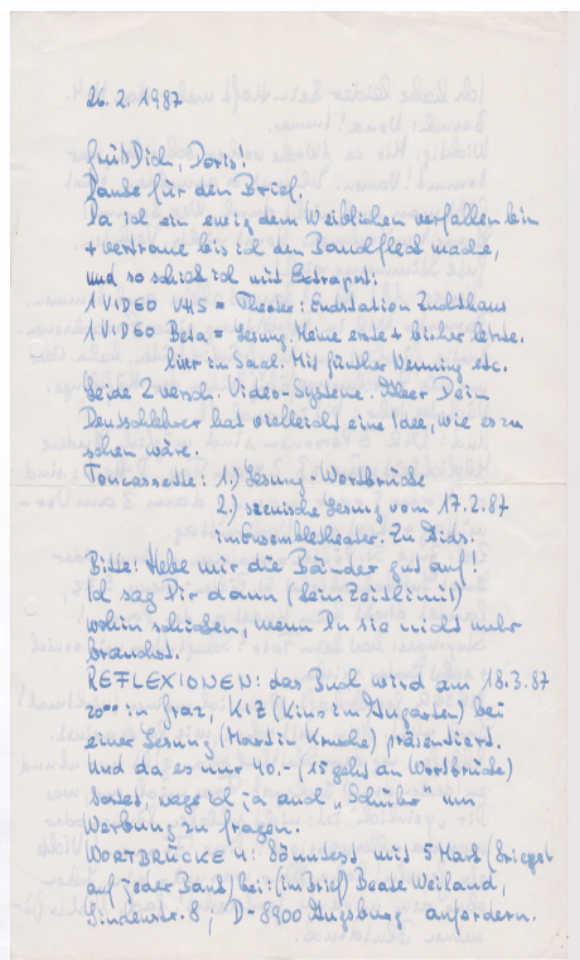 26.2.1987
Grüß Dich, Doris!
Danke für den Brief.
Da ich ein ewig dem Weiblichen verfallen bin
+ verströme bis ich den Bandfleck mache,
und so schick ich mit Extrapost:
1 VIDEO VHS = Theater: Endstation Zuchthaus
1 VIDEO Beta = Lesung. Meine erste + bisher letzte.
hier im Saal. Mit Günther Nenning etc.
Leide 2 versch. Video-Systeme. Aber Dein
Deutschlehrer hat vielleicht eine Idee, wie es zu
sehen wäre.
Toncassette: 1.) Lesung - Wortbrücke
2.) szenische Lesung vom 17.2.87
im Ensembletheater. Zu Aids.
Bitte: Hebe mir die Bänder gut auf!
Ich sag Dir dann (kein Zeitlimit)
wohin schicken, wenn Du sie nicht mehr
brauchst.
REFLEXIONEN: das Buch wird am 18.3.87
20⁰⁰ in Graz, KIZ (Kino im Augarten) bei
einer Lesung (Martin Krusche) präsentiert.
Und da es nur 40.- (15 gehts an Wortbrücke)
kostet, wage ich ja auch um
Werbung zu fragen.
WORTBRÜCKE 4: Könntest mit 5 Mark
auf jeder Bank) bei: (im Brief) Beate Weiland,
Lindenstr. 8, D-8900 Augsburg anfordern.